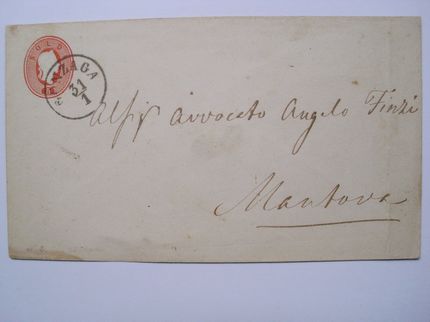 SOLDI
GONZAGA
31
1
Alsigr Avvocato Angelo Finzi
Mantova